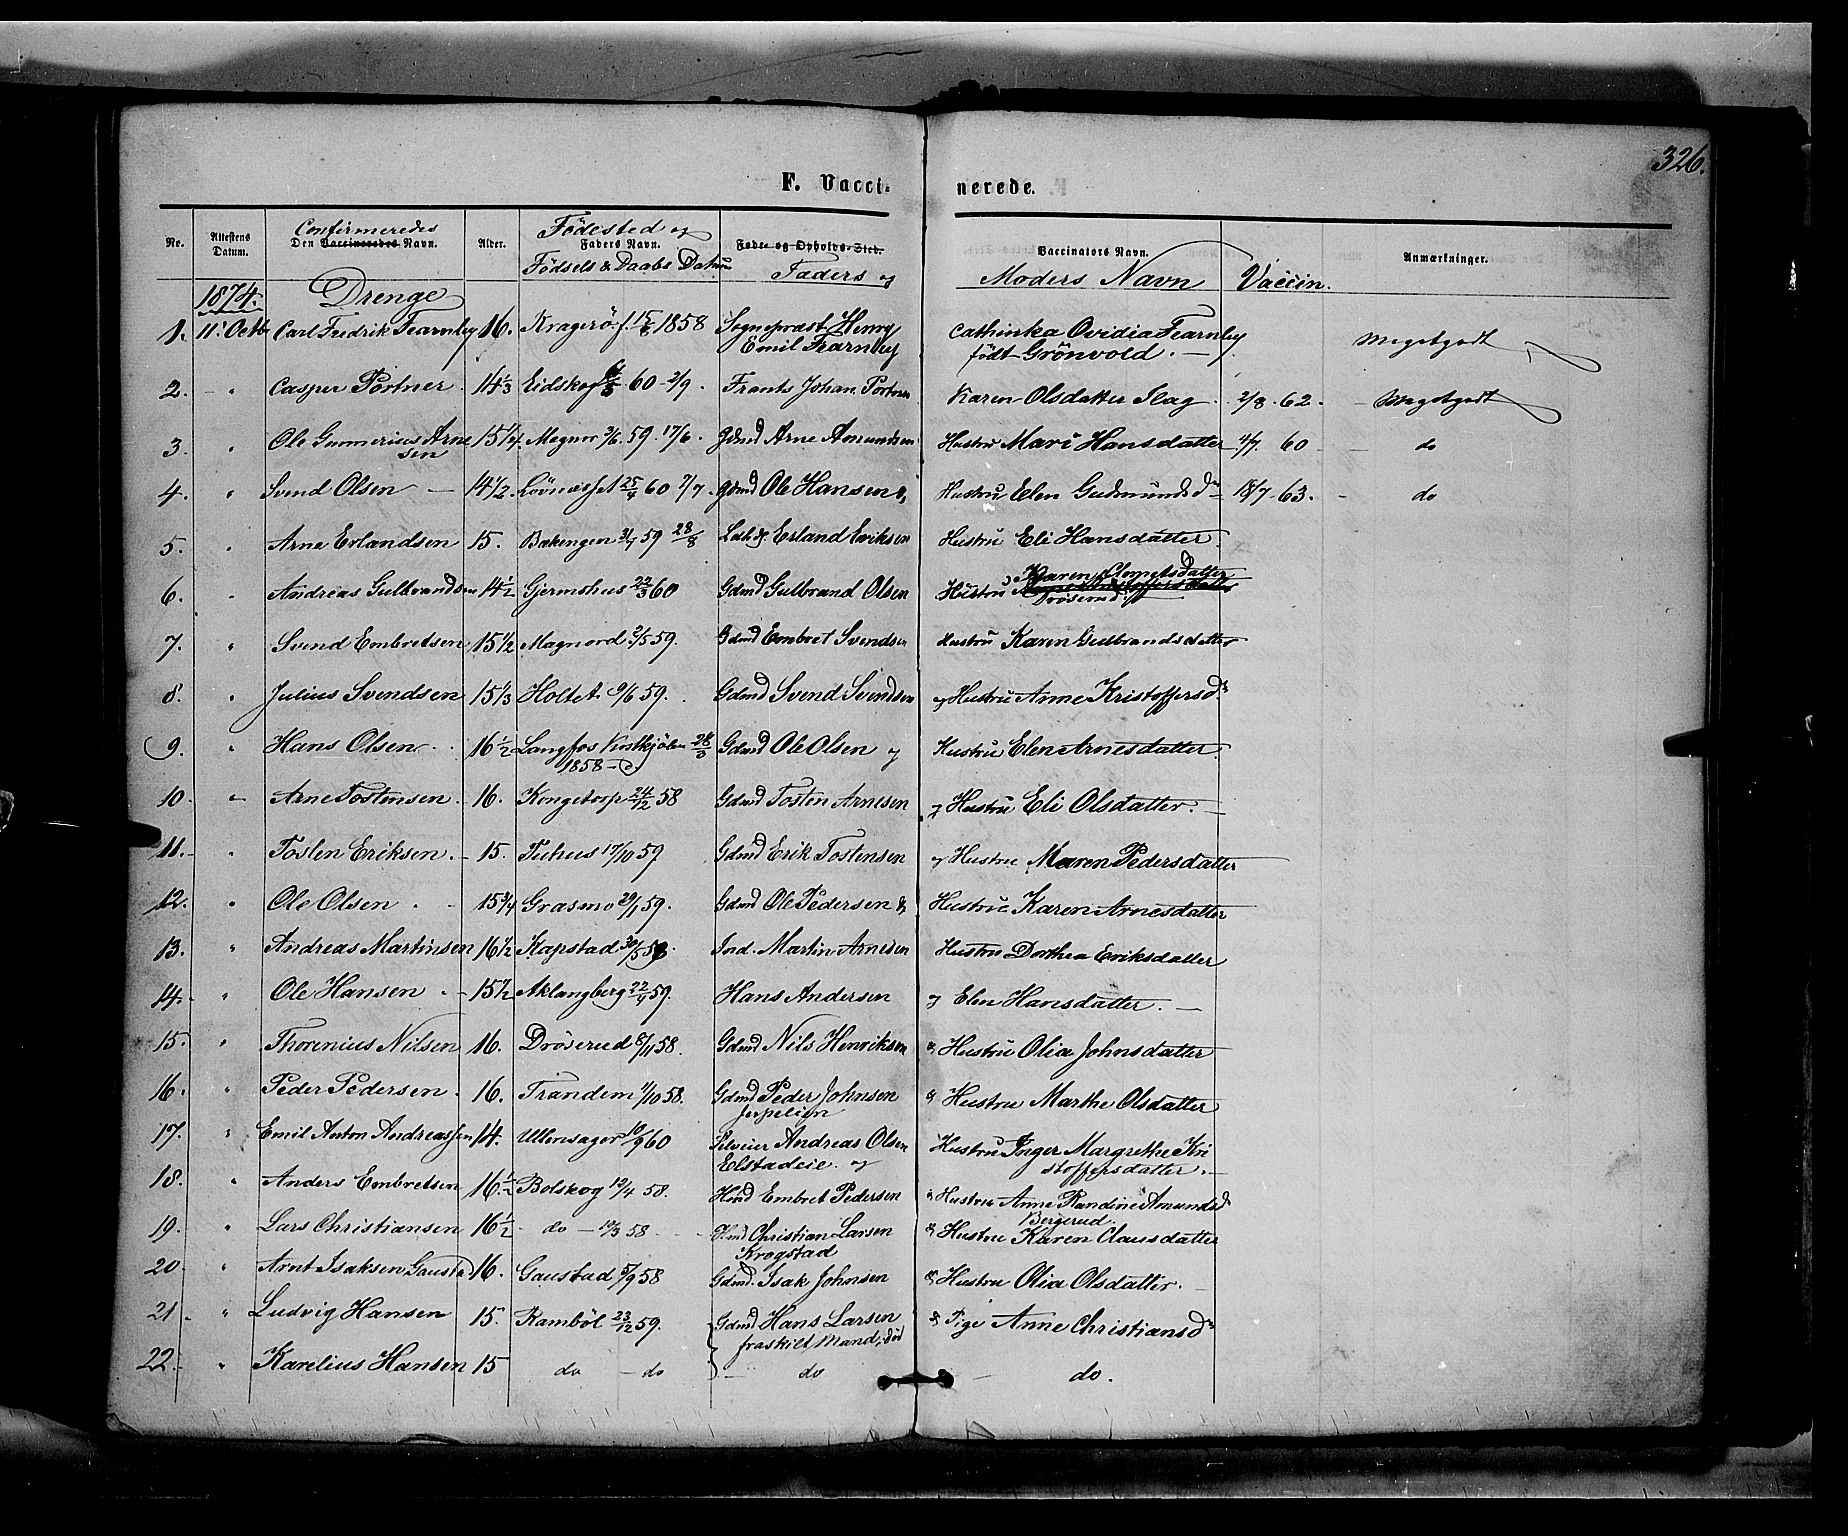 326.
F. Vacci-
nerede.
No.
Attestens Datum.
Confirmeredes
Den Vaccineredes Navn.
Alder.
Födested og
Faders Navn.
Födsels & Daabs Datum
Føde- og Opholds-Sted.
Faders og
Vaccinators Navn.
Moders Navn
Vaccin.
Anmærkninger.
1874. Drenge
1. 11. Octb Carl Fredrik Fearnley 16. Kragerö f. 15/8 1858 Sognepræst Henry Cathinka Ovidia Fearnley Megetgodt
Emil Fearnley født Grönvold.
2. " Casper Portner 14 1/3 Eidskog 60 - 2/9. Frants Johan Portner Karen Olsdatter Slag. 2/8. 62. Megetgodt
3. " Ole Gunnerius Arne 15 1/4 Magnor 3/6. 59. 17/6. Gdmd Arne Amundsen Hustru Mari Hansdatter 4/7 60 do
sen
4. " Svend Olsen 14 1/2. Lövnæsset 25/4 60 7/7. Gdmd Ole Hansen & Hustru Elen Gudmundsdr 18/7 63. do
5. " Arne Erlandsen 15. Bakengen 59 28/8 Erland Eriksen Hustru Eli Hansdatter.
6. " Andreas Gulbrandsen 14 1/2 Gjermshus 22/3 60 Gdmd Gulbrand Olsen Hustru Karen
Dröserud
7. " Svend Embretsen 15 1/2 Magnord 2/5 59. Gdmd Embret Svendsen Hustru Karen Gulbrandsdatter
8. " Julius Svendsen 15 1/3 Holtet 9/6 59. Gdmd Svend Svendsen og Hustru Anne Kristoffersdr
9. " Hans Olsen 16 1/2 Langfos 28/3 Gdmd Ole Olsen og Hustru Elen Arnesdatter
1858
10 " Arne Tostensen 16. Kongetorp 24/12 58 Gdmd Tosten Arnesen og Hustru Eli Olsdatter.
11. " Tosten Eriksen 15. Puhus 17/10 59 Gdmd Erik Tostensen og Hustru Maren Pedersdatter
12. " Ole Olsen 15 3/4 Grasmo 29/1 59. Gdmd Ole Pedersen & Hustru Karen Arnesdatter
13. " Andreas Martinsen 16 1/2 Kapstad 30/5 58. Ind. Martin Arnesen Hustru Dorthea Eriksdatter
14. " Ole Hansen 15 1/2 Aklangberg 22/4 59. Hans Andersen og Elen Hansdatter.
15. " Thorenius Nilsen 16. Dröserud 8/11 58. Gdmd Nils Henriksen & Hustru Olia Johnsdatter
16. " Peder Pedersen. 16. Trandem 11/10 58. Gdmd Peder Johnsen & Hustru Marthe Olsdatter
17. " Emil Anton Andreassen 14. Ullensager 10/9 60 Andreas Olsen Hustru Inger Margrethe Kri
Elstadeie og stoffersdatter.
18. " Anders Embretsen 16 1/2 Bolskog 12/4 58. Hmd Embret Pedersen & Hustru Anne Randine Amundsd
Bergerud
19. " Lars Christiansen 16 1/2 do 10/3 58 Hmd Christian Larsen & Hustru Karen Clausdatter
Krogstad
20. " Arnt Isaksen Gaustad 16. Gaustad 5/9 58 Gdmd. Isak Johnsen & Hustru Olia Olsdatter.
21. " Ludvig Hansen 15. Ramböl 23/12 59. Gdmd Hans Larsen & Pige Anne Christiansdr
fraskilt Mand, död
22. " Karelius Hansen 15 do do do do.